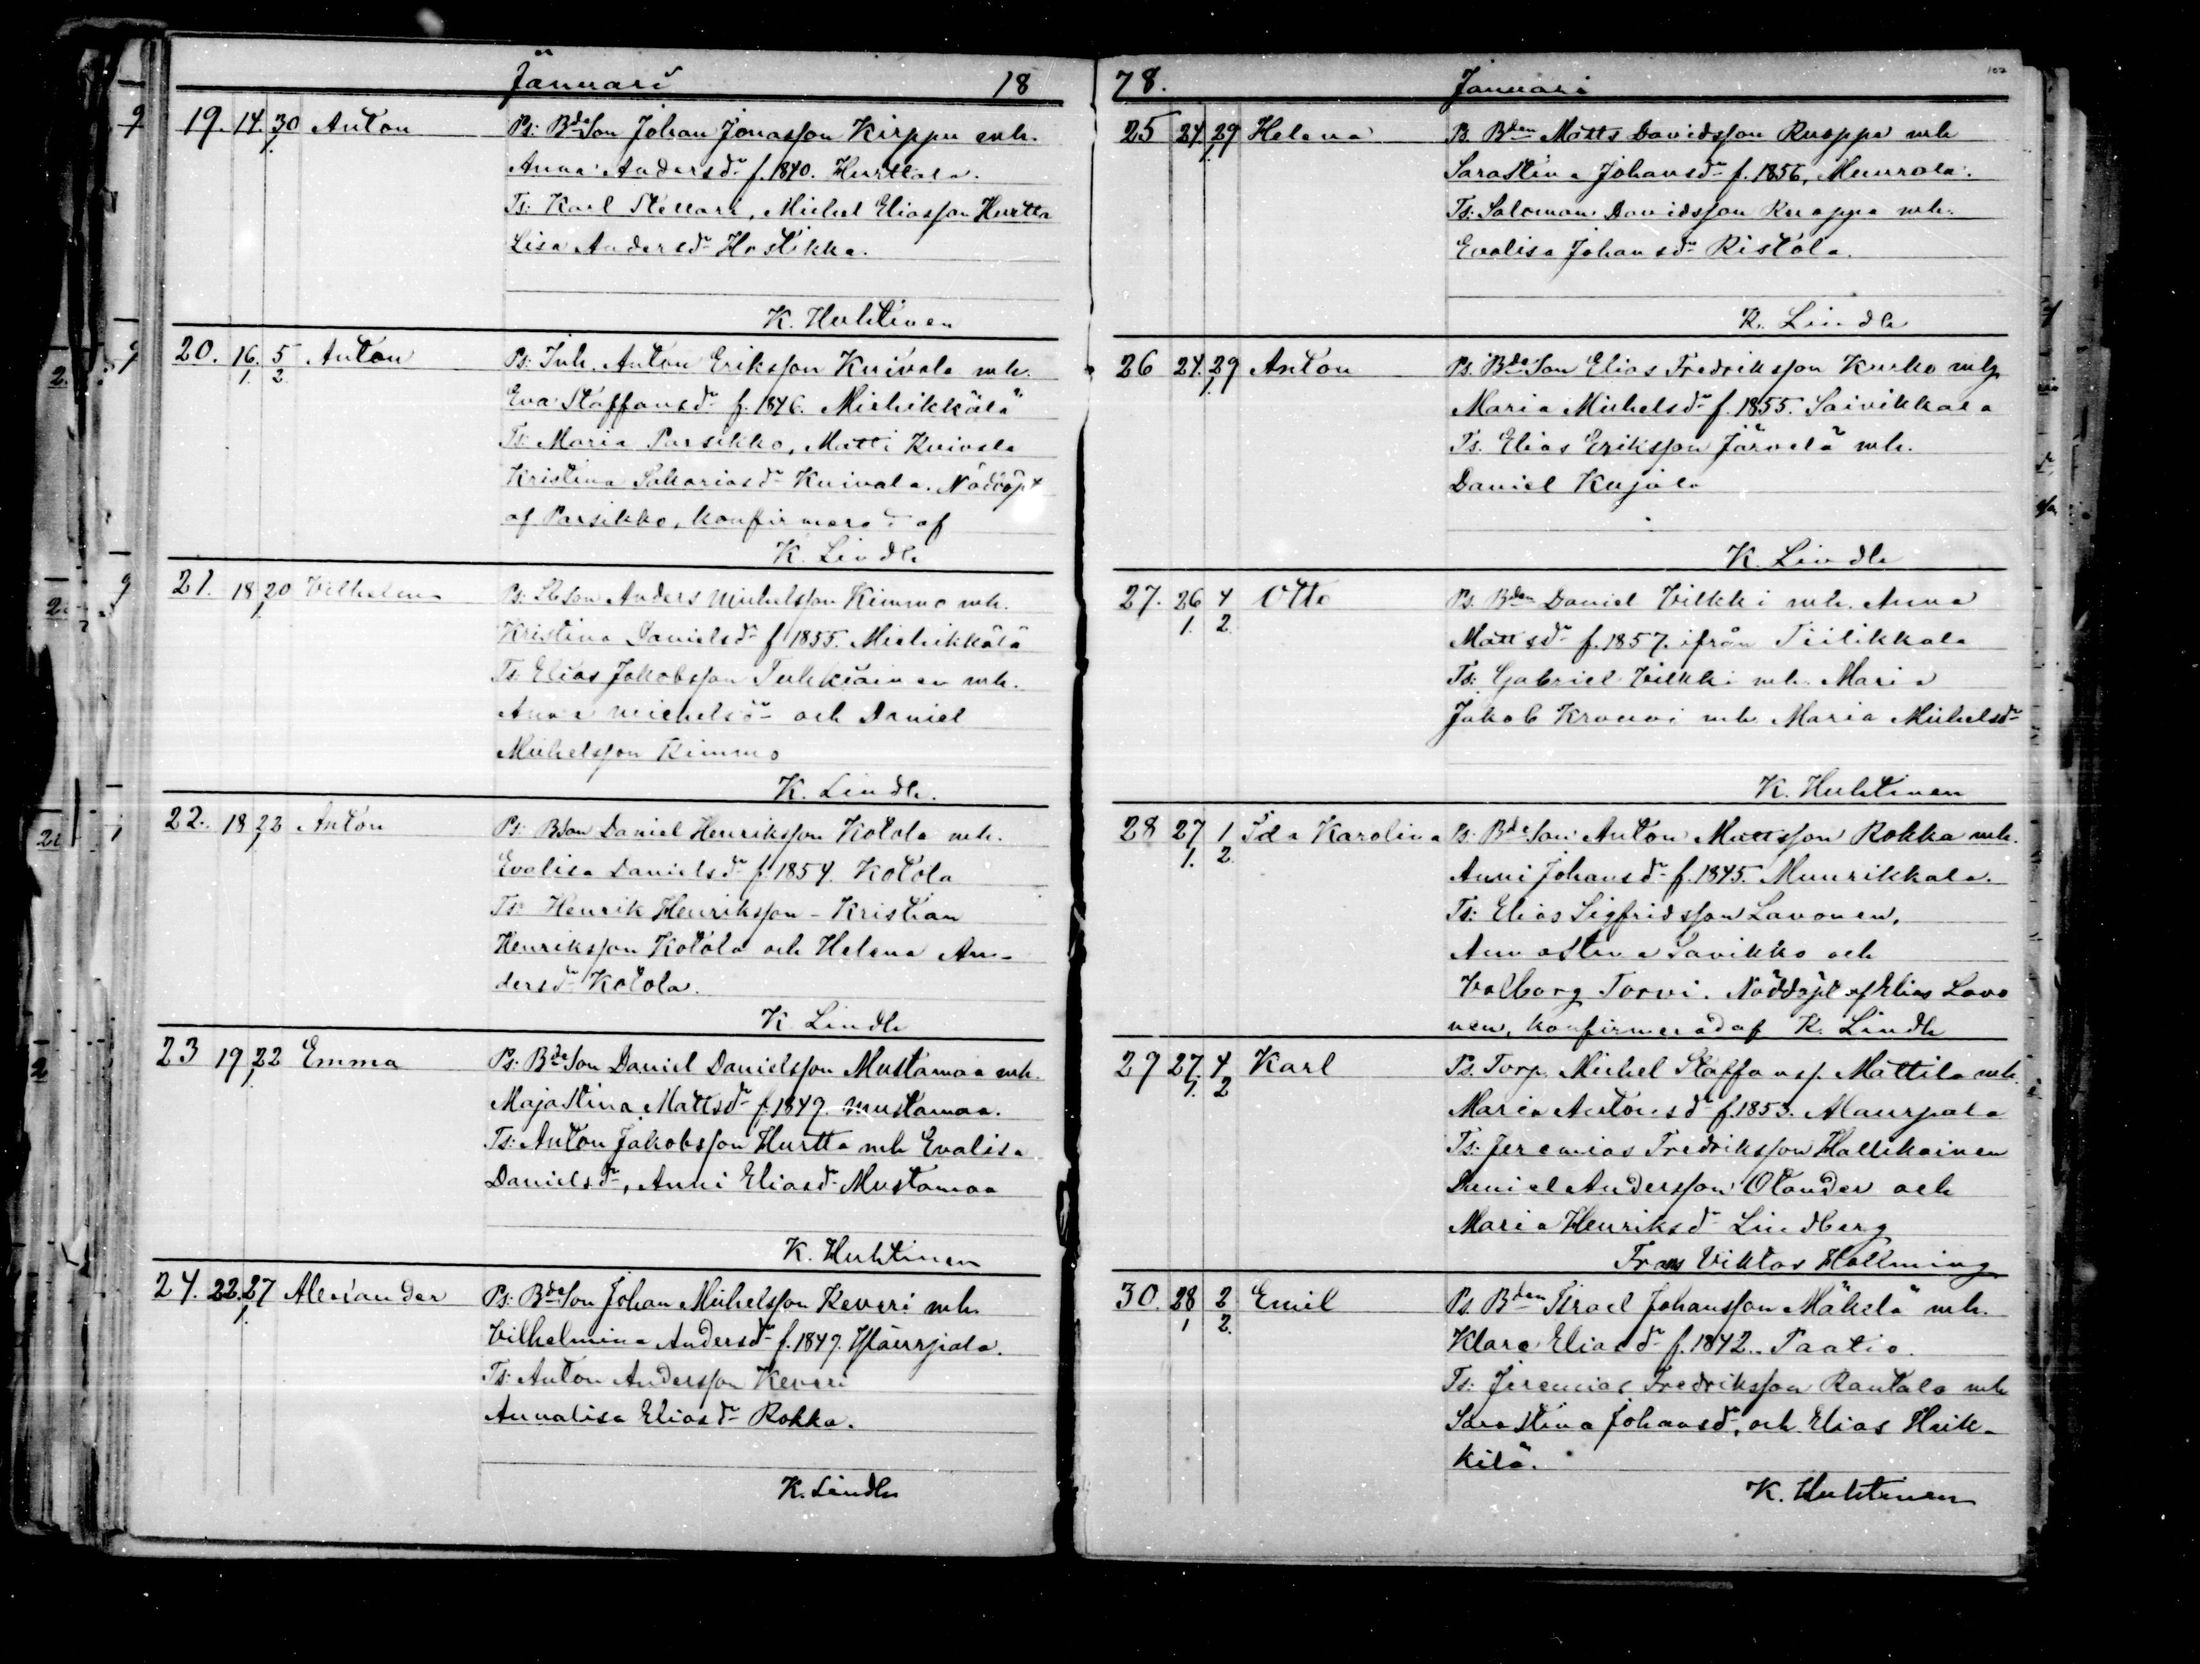 Januari 18
19. 14. 30 Anton Ps: Bde Son Johan Jonasson Kirppu mh.
1.
Anna Andersdr f. 1840. Hurttala.
Ts: Karl Stellari, Michel Eliasson Hurtta
Lisa Andersdr Hostikka.
K. Huhtinen
20. 16. 5 Anton Ps: Inh. Anton Eriksson Kuivala mh.
1. 2.
Eva Staffansdr f. 1846. Miehikkälä
Ts: Maria Parsikko, Matti Kuivala
Kristina Sakariasdr Kuivala. Nöddöpt
af Parsikko, konfirmerad af
K. Lindh
21. 18 20 Vilhelm Ps: Anders Michelsson Kimmo mh.
1.
Kristina Danielsdr f 1855. Miehikkälä
Ts: Elias Jakobsson Tulkkiainen mh.
Anna Michelsdr och Daniel
Michelsson Kimmo
K. Lindh.
22. 18 22 Anton Ps: BSon Daniel Henriksson Kotola mh.
1
Evalisa Danielsdr f 1854. Kotola
Ts: Henrik Henriksson - Kristian
Henriksson Kotola och Helena An-
dersdr Kotola.
K Lindh
23 19 22 Emma Ps: Bde Son Daniel Danielsson Mustamaa mh.
1.
Maja Stina Mattsdr f. 1849. Mustamaa.
Ts: Anton Jakobsson Hurtta mh Evalisa
Danielsdr, Anni Eliasdr Mustamaa
K. Huhtinen
24. 22. 27 Alexander Ps: Bde Son Johan Michelsson Keveri mh.
1.
Vilhelmina Andersdr f. 1849.
Ts: Anton Andersson Keveri
Annalisa Eliasdr Rokka.
K. Lindh
78. Januari
25 24. 29 Helena Ps. Bden Matts Davidsson Ruoppa mh
1.
Sara Stina Johansdr f. 1856, Muurola.
Ts: Saloman Davidsson Ruoppa mh.
Evalisa Johansdr Ristola.
K. Lindh
26 24. 29 Anton Ps. Bde Son Elias Fredriksson Kurko mh
1.
Maria Michelsdr f. 1855. Saivikkala
Ts. Elias Eriksson Järvelä mh.
Daniel Kujala
K. Lindh
27. 26 4 Otto Ps. Bden Daniel Vilkki mh. Anna
1. 2.
Mattsdr f. 1857. ifrån Tiilikkala
Ts: Gabriel Vilkki mh Maria
Jakob Krouvi mh Maria Michelsdr
K. Huhtinen
28 27 1 Ida Karolina Ps. Bde Son Anton Mattsson Rokka mh.
1. 2.
Anni Johansdr f. 1845. Muurikkala.
Ts: Elias Sigfridsson Lavonen,
Anna Stina Savikko och
Valborg Torvi. Nöddöpt af Elias Lavo
nen, konfirmerad af K. Lindh
29 27. 4 Karl Ps. Torp. Michel Staffanss. Mattila mh.
1. 2
Maria Antonsdr f. 1853. Alaurpala
Ts: Jeremias Fredriksson Hallikainen
Daniel Andersson Olander och
Maria Henriksdr Lindberg
Frans Viktor Hallming
30. 28 2 Emil Ps Bden Israel Johansson Mäkelä mh.
1 2.
Klara Eliasdr f. 1842. Paatio.
Ts: Jeremias Fredriksson Rantala mh
Sara Stina Johansdr, och Elias Heik-
kilä.
K. Huhtinen